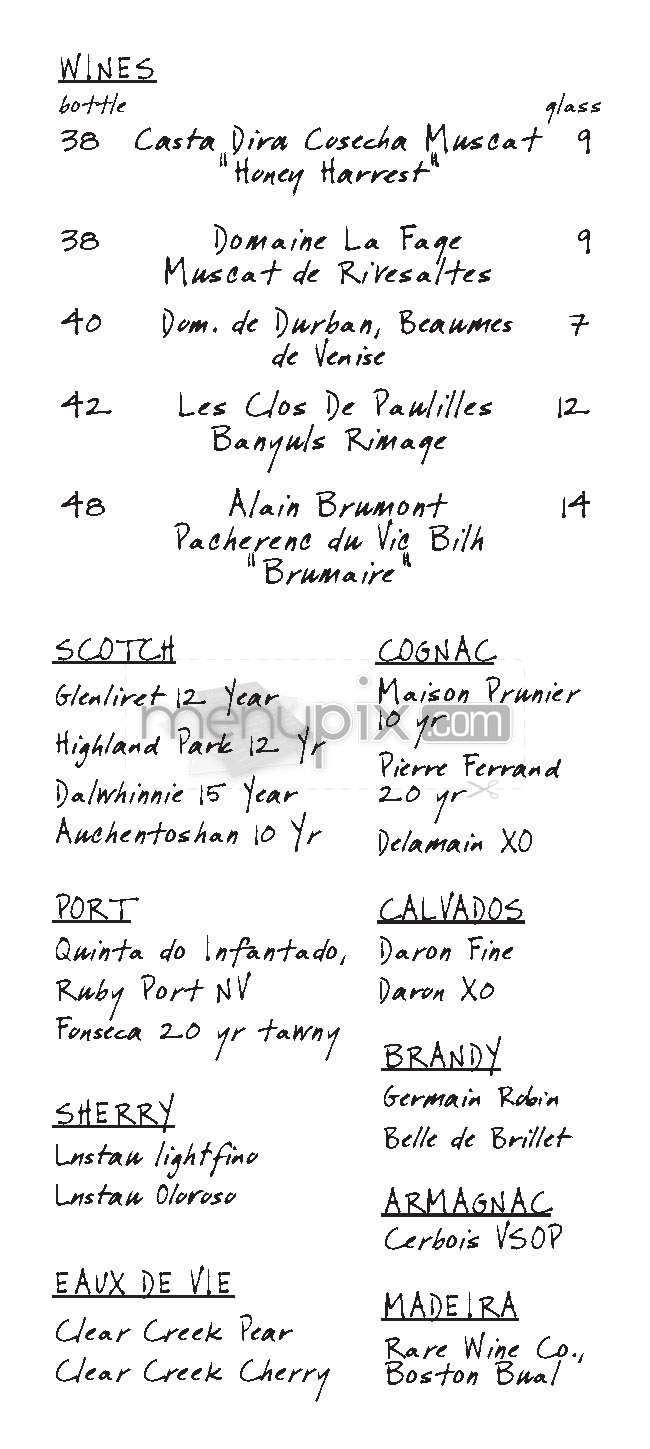 WINES
bottle glass
38 Casta Dira Cosecha Muscat 9
"Honey Harrest"
38 Domaine La Fage 9
Muscat de Rivesaltes
40 Dom. de Durban, Beaumes 7
de Venise
42 Les Clos De Paulilles 12
Banyuls Rimage
48 Alain Brumont 14
Pacherenc du Vic Bilh
"Brumaire"
SCOTCH
Glenliret 12 Year
Highland Park 12 Yr
Dalwhinnie 15 Year
Auchentoshan 10 Yr
PORT
Quinta do Infantado,
Ruby Port NV
Fonseca 20 yr tawny
SHERRY
Lnstau lightfino
Lnstau Oloroso
EAUX DE VIE
Clear Creek Pear
Clear Creek Cherry
COGNAC
Maison Prunier
10 yr
Pierre Ferrand
20 yr
Delamain XO
CALVADOS
Daron Fine
Daron XO
BRANDY
Germain Robin
Belle de Brillet
ARMAGNAC
Cerbois VSOP
MADEIRA
Rare Wine Co.,
Boston Bual
menupix.com